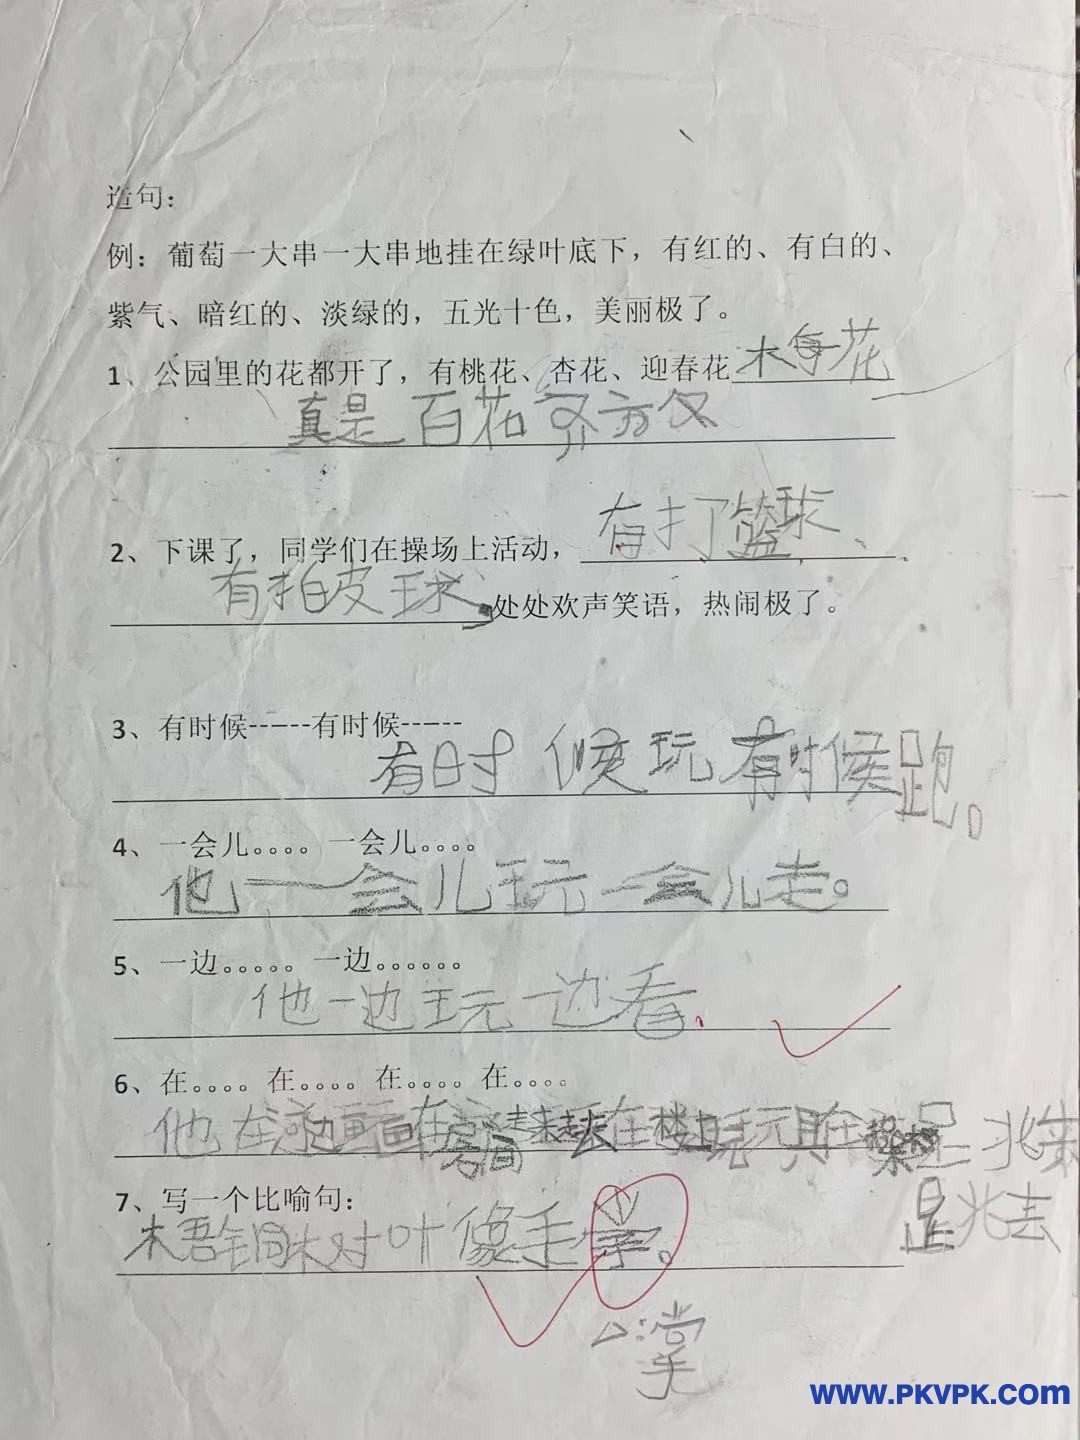 造句：
例：葡萄一大串一大串地挂在绿叶底下，有红的、有白的、
紫气、暗红的、淡绿的，五光十色，美丽极了。
1、公园里的花都开了，有桃花、杏花、迎春花梅花
真是百花齐放
2、下课了，同学们在操场上活动，有打篮球、
有拍皮球，处处欢声笑语，热闹极了。
3、有时候------有时候------
有时候玩有时候跑。
4、一会儿。。。。一会儿。。。。
他一会儿玩一会儿走。
5、一边。。。。。一边。。。。。。
他一边玩一边看.
6、在。。。。在。。。。在。。。。在。。。。
他在 画画在房间走来走去在楼上玩玩具在操场 跳来
跳去
7、写一个比喻句：
叶像手掌。
掌
www.PKVPK.com